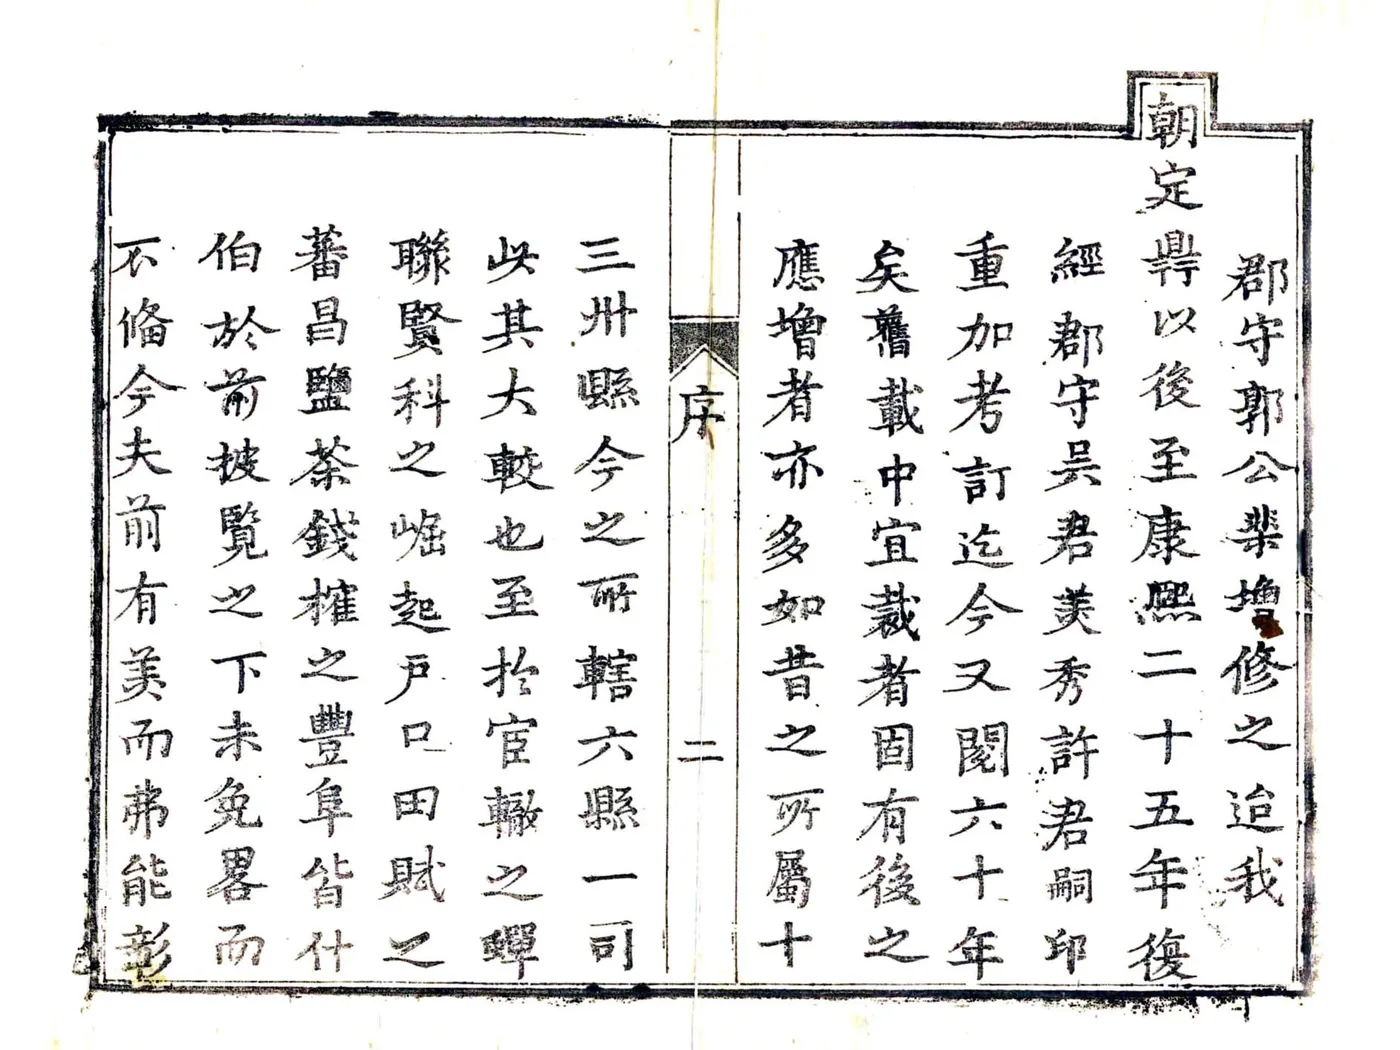 郡守郭公棐增修之迨我
朝定鼎以後至康熙二十五年復
經郡守吴君美秀許君嗣印
重加考訂迄今又閱六十年
矣舊載中宜裁者固有後之
應增者亦多如昔之所屬十
序
二
三州縣今之所轄六縣一司
此其大較也至於宦轍之蟬
聯賢科之崛起戶口田賦之
蕃昌鹽茶錢榷之豐阜皆什
伯於前披覽之下未免畧而
不僃今夫前有美而弗能彰